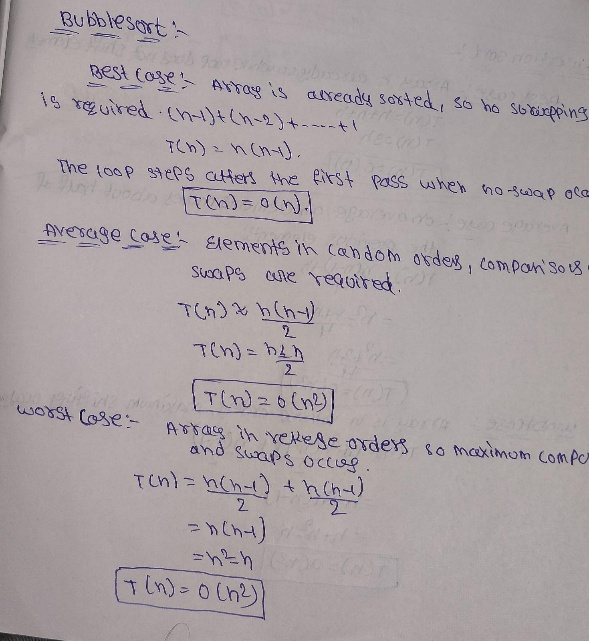 Bubblesort :-
Best Case :- Array is already sorted, so no swapping
is required. (n-1)+(n-2)+-----+1
T(n) = n(n-1).
The loop steps after the first pass when no-swap occ
T(n) = O(n).
Average Case :- Elements in random order, comparisons
swaps are required.
T(n) ≈ n(n-1)/2
T(n) = n²-n/2
T(n) = O(n²)
Worst Case :- Array in reverse orders so maximum compa
and swaps occurs.
T(n) = n(n-1)/2 + n(n-1)/2
= n(n-1)
= n²-n
T(n) = O(n²)